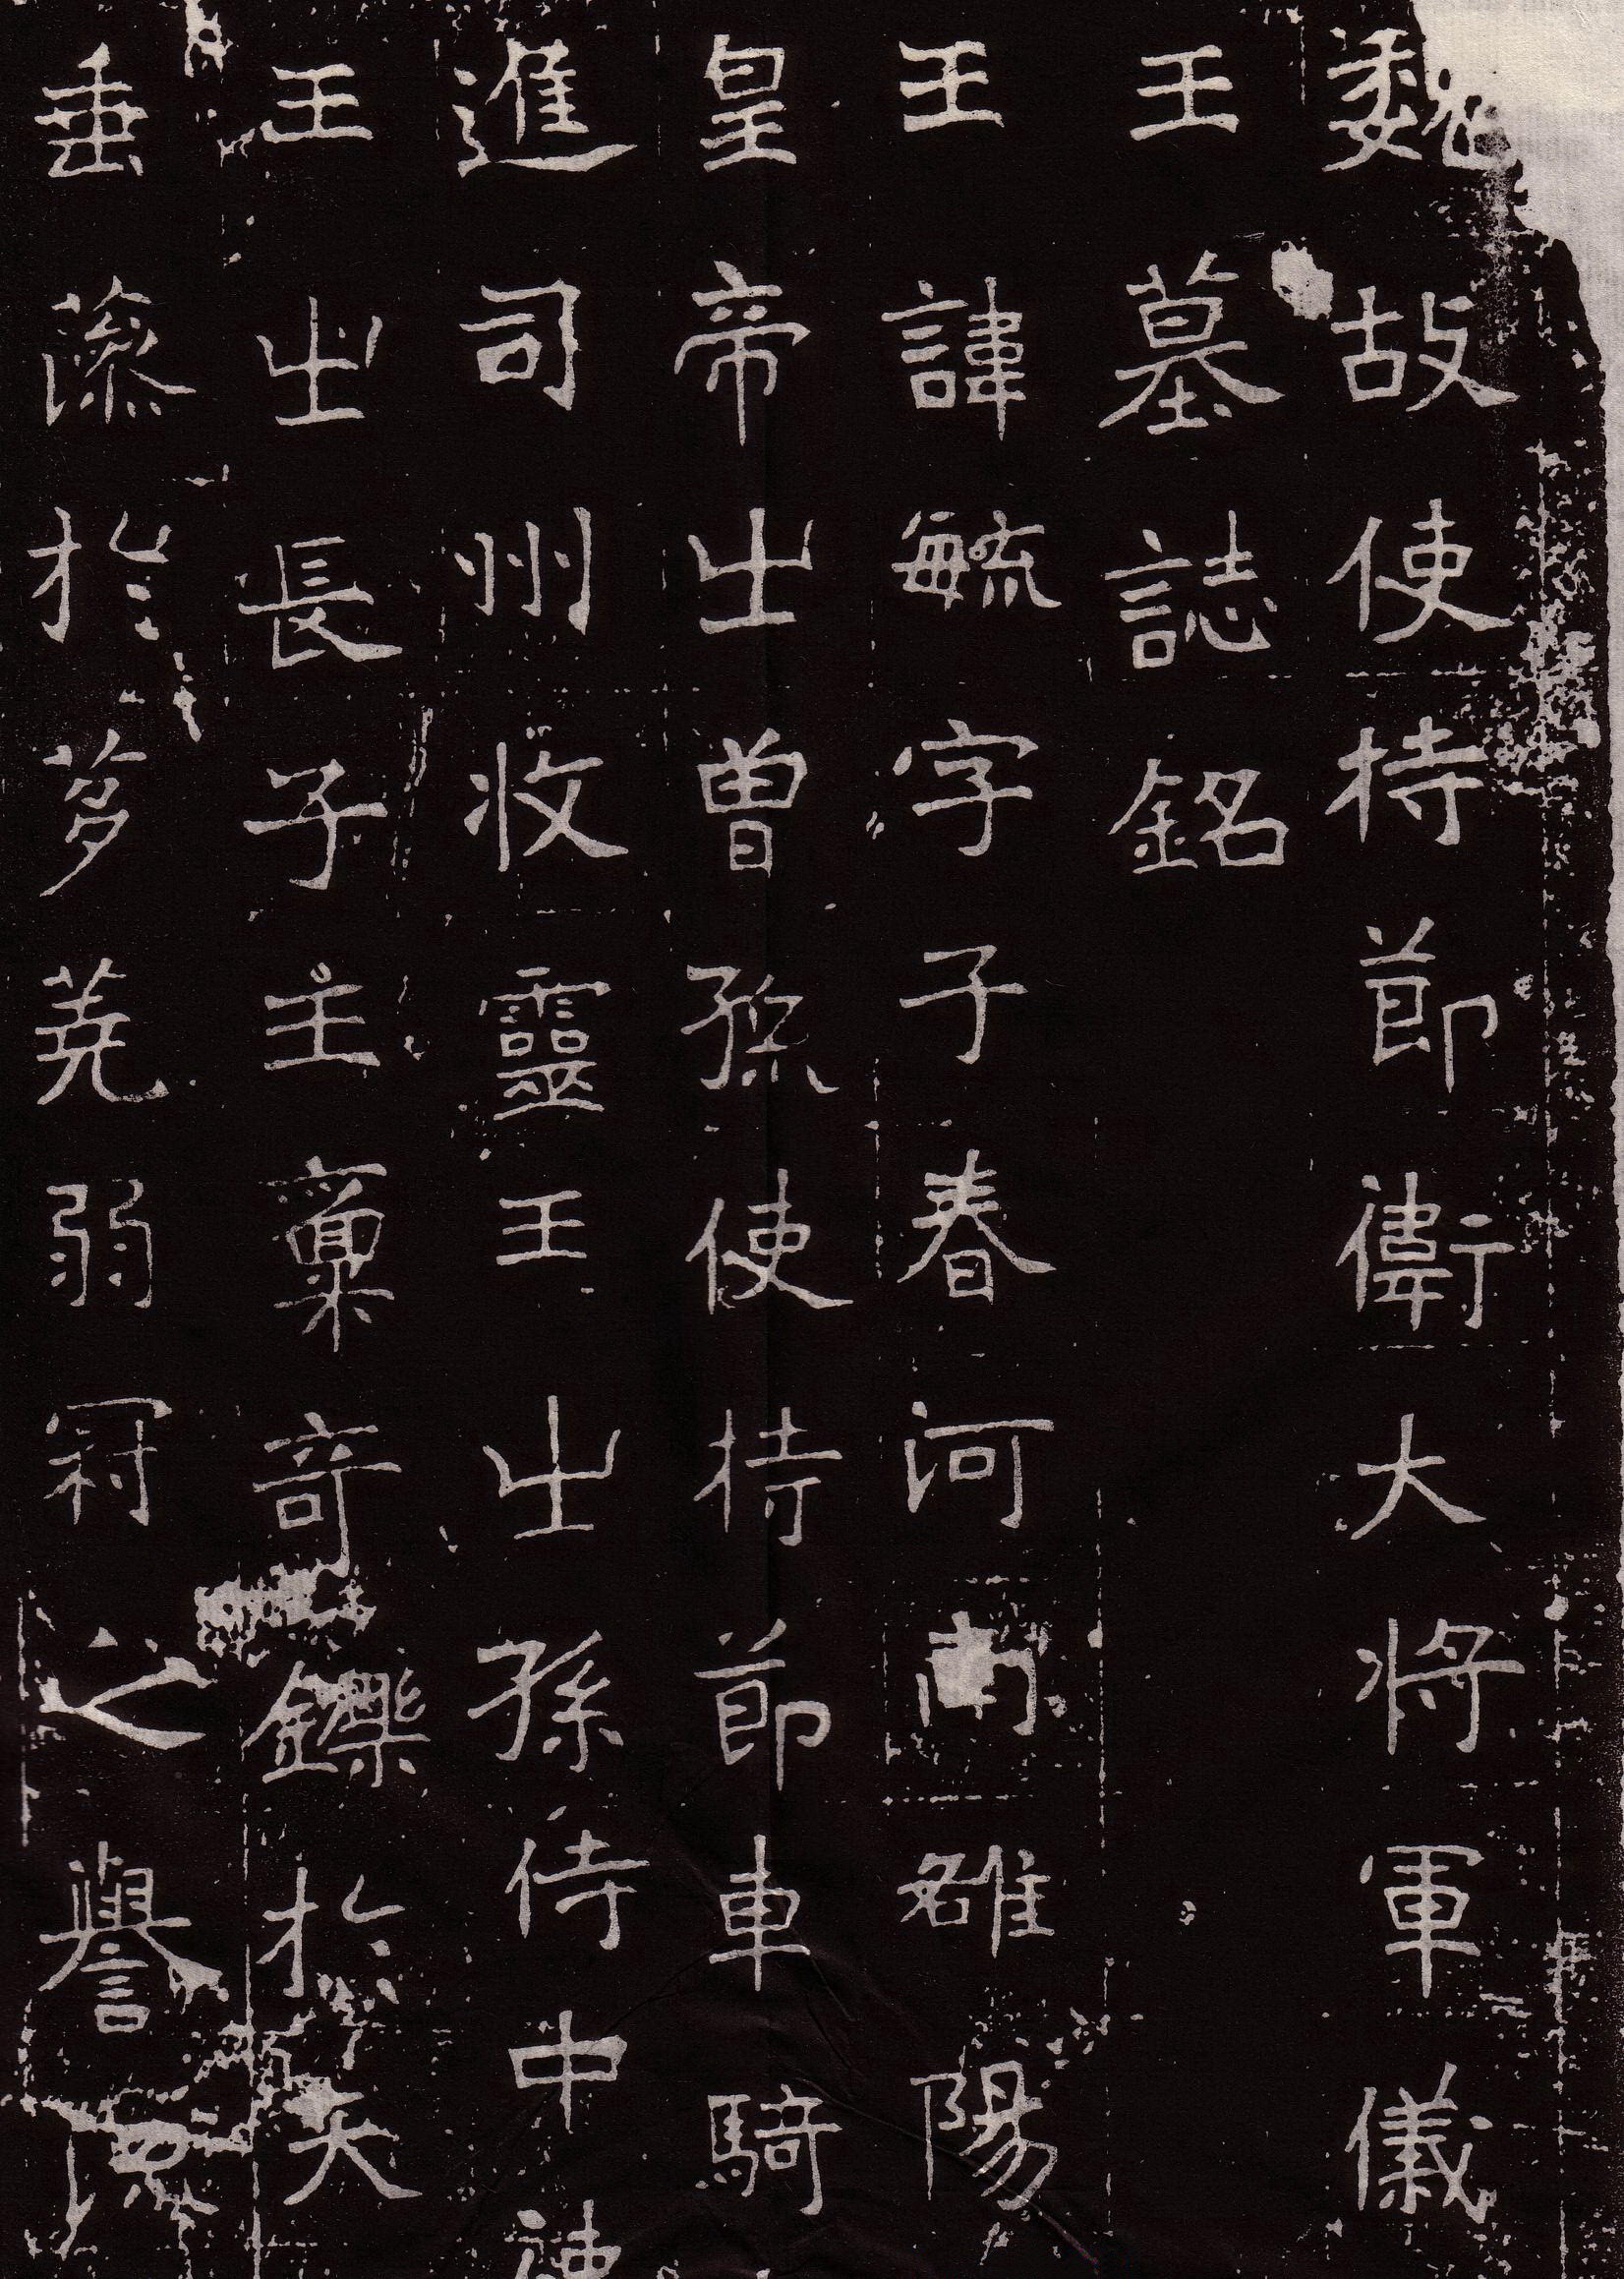 魏故使持節衛大將軍儀
王墓誌銘
王諱毓字子春河南雒陽
皇帝㞢曾孫使持節車騎
進司州牧靈王㞢孫侍中
王㞢長子生稟奇鑠於天
垂蔭於芻蕘弱冠之譽